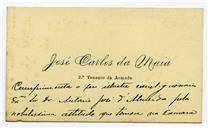 José Carlos da Maia
2.º Tenente da Armada
Cumprimenta o seu illustre
Ex.mo Sr. Dr. Antonio José d'Almeida pela
nobilissima attitude que tomou na Camara